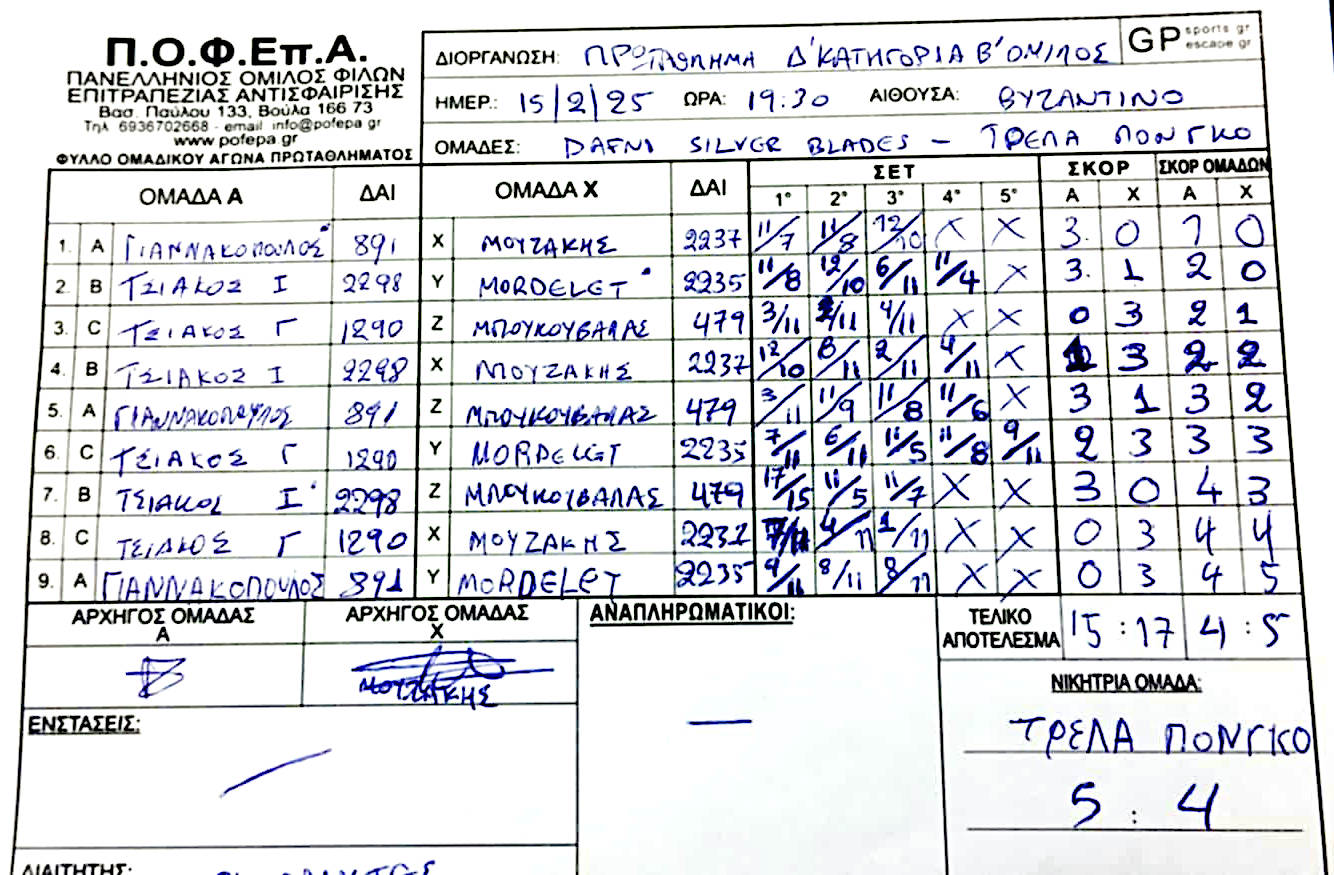 Π.Ο.Φ.Επ.Α.
ΠΑΝΕΛΛΗΝΙΟΣ ΟΜΙΛΟΣ ΦΙΛΩΝ
ΕΠΙΤΡΑΠΕΖΙΑΣ ΑΝΤΙΣΦΑΙΡΙΣΗΣ
Βασ. Παύλου 133, Βούλα 166 73
Τηλ 6936702668 - email info@pofepa gr
www.pofepa.gr
ΦΥΛΛΟ ΟΜΑΔΙΚΟΥ ΑΓΩΝΑ ΠΡΩΤΑΘΛΗΜΑΤΟΣ
ΔΙΟΡΓΑΝΩΣΗ: ΠΡΩΤΑΘΛΗΜΑ Δ'ΚΑΤΗΓΟΡΙΑ Β'ΟΜΙΛΟΣ
GP sports gr
escape gr
ΗΜΕΡ.: 15/2/25 ΩΡΑ: 19:30 ΑΙΘΟΥΣΑ: ΒΥΖΑΝΤΙΝΟ
ΟΜΑΔΕΣ: DAFNI SILVER BLADES - ΤΡΕΛΑ ΠΟΝΓΚΟ
ΟΜΑΔΑ Α ΔΑΙ ΟΜΑΔΑ Χ ΔΑΙ ΣΕΤ ΣΚΟΡ ΣΚΟΡ ΟΜΑΔΩΝ
1° 2° 3° 4° 5° Α Χ Α Χ
1. A ΓΙΑΝΝΑΚΟΠΟΥΛΟΣ 891 X ΜΟΥΖΑΚΗΣ 2237 11/7 11/8 12/10 X X 3 0 1 0
2. B ΤΣΙΑΚΟΣ Ι 2298 Y MORDELET 2235 11/8 12/10 6/11 11/4 X 3 1 2 0
3. C ΤΣΙΑΚΟΣ Γ 1290 Z ΜΠΟΥΚΟΥΒΑΛΑΣ 479 3/11 /11 4/11 X X 0 3 2 1
4. B ΤΣΙΑΚΟΣ Ι 2298 X ΜΟΥΖΑΚΗΣ 2237 12/10 8/11 2/11 4/11 X 1 3 2 2
5. A ΓΙΑΝΝΑΚΟΠΟΥΛΟΣ 891 Z ΜΠΟΥΚΟΥΒΑΛΑΣ 479 3/11 11/9 11/8 11/6 X 3 1 3 2
6. C ΤΣΙΑΚΟΣ Γ 1290 Y MORDELET 2235 7/11 6/11 11/5 11/8 9/11 2 3 3 3
7. B ΤΣΙΑΚΟΣ Ι 2298 Z ΜΠΟΥΚΟΥΒΑΛΑΣ 479 17/15 11/5 11/7 X X 3 0 4 3
8. C ΤΣΙΑΚΟΣ Γ 1290 X ΜΟΥΖΑΚΗΣ 2237 7/11 4/11 1/11 X X 0 3 4 4
9. A ΓΙΑΝΝΑΚΟΠΟΥΛΟΣ 891 Y MORDELET 2235 9/11 8/11 8/11 X X 0 3 4 5
ΑΡΧΗΓΟΣ ΟΜΑΔΑΣ Α
ΑΡΧΗΓΟΣ ΟΜΑΔΑΣ Χ
ΜΟΥΖΑΚΗΣ
ΑΝΑΠΛΗΡΩΜΑΤΙΚΟΙ:
—
ΤΕΛΙΚΟ ΑΠΟΤΕΛΕΣΜΑ 15:17 4:5
ΝΙΚΗΤΡΙΑ ΟΜΑΔΑ:
ΤΡΕΛΑ ΠΟΝΓΚΟ
5 : 4
ΕΝΣΤΑΣΕΙΣ:
ΔΙΑΙΤΗΤΗΣ: